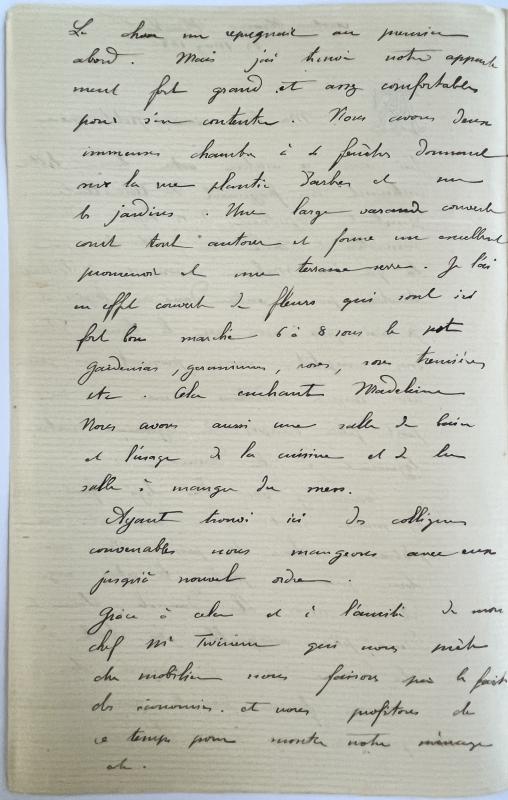 La chose me répugnait au premier
abord. Mais j'ai trouvé notre apparte
ment fort grand et assez confortable
pour s'en contenter. Nous avons deux
immenses chambres à 4 fenêtres donnant
sur la rue plantée d'arbres et sur
les jardins. Une large varand couverte
court tout autour et forme un excellent
promenoir et une terrasse serre. Je l'ai
en effet couvert de fleurs qui sont ici
fort bon marché 6 à 8 sous le pot
Gardenias, geraniums, roses, roses tremières
etc. Cela enchante Madeleine
Nous avons aussi une salle de bain
et l'usage de la cuisine et de la
salle à manger du mess.
Ayant trouvé ici des collègues
convenables nous mangeons avec eux
jusqu'à nouvel ordre.
Grâce à cela et à l'amitié de mon
chef Mr qui nous prête
du mobilier nous faisons par le fait
des économies. et nous profitons de
ce temps pour monter notre ménage
etc.